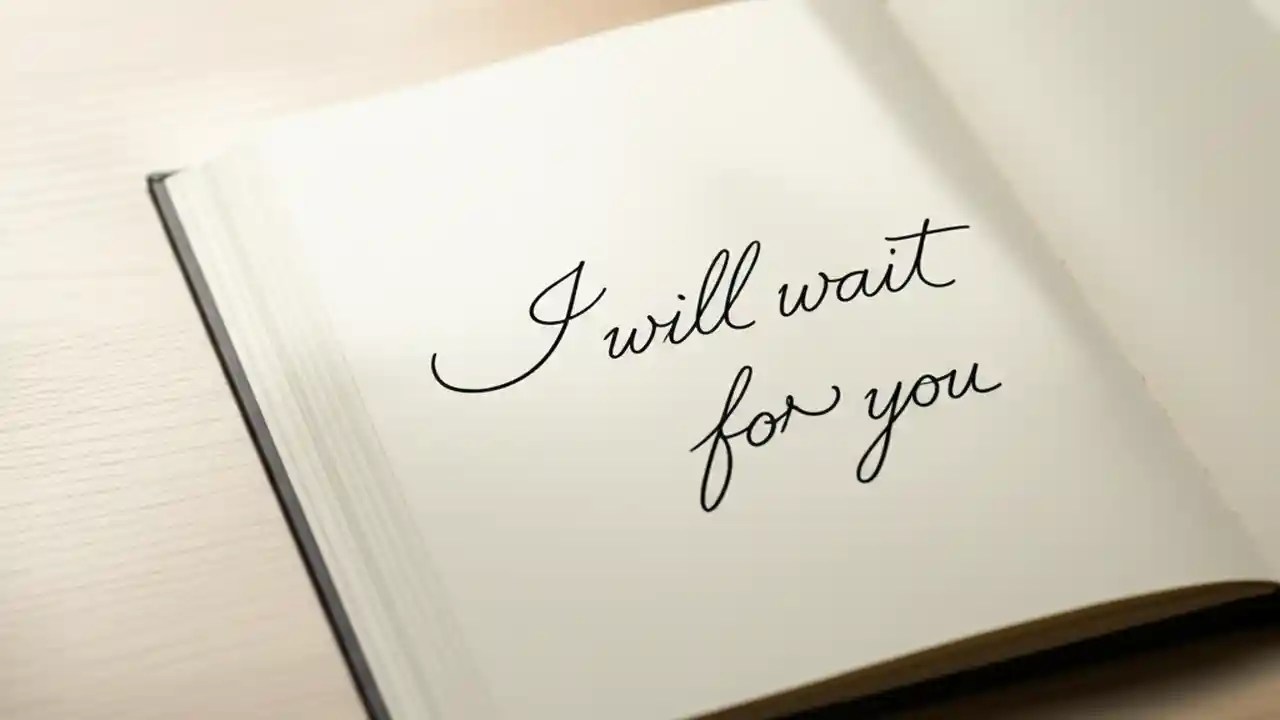 I will wait
for you